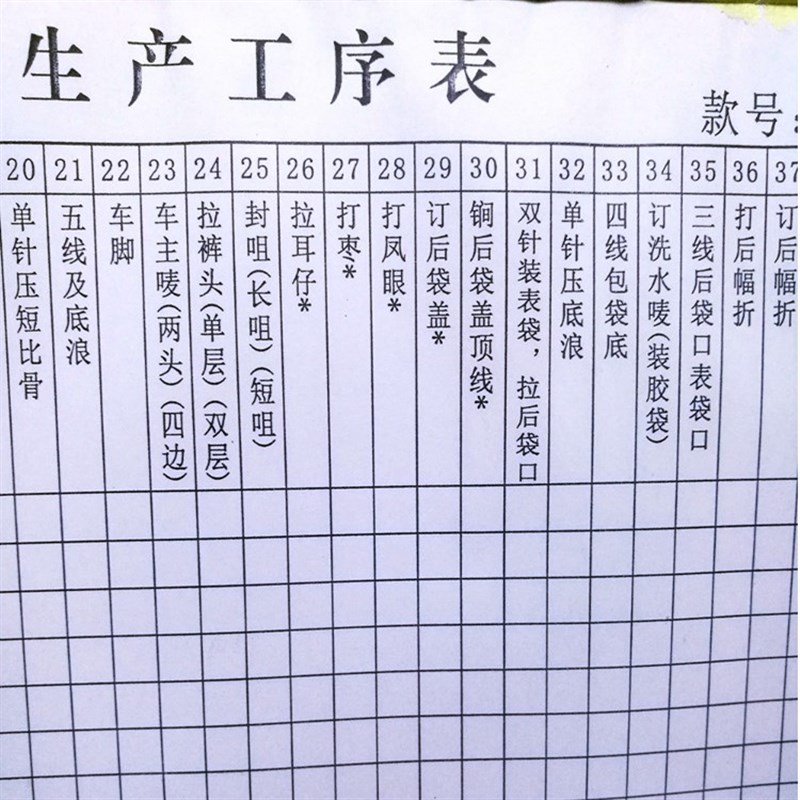 生产工序表
款号:
20 21 22 23 24 25 26 27 28 29 30 31 32 33 34 35 36 37
单针压短比骨
五线及底浪
车脚
车主唛(两头)(四边)
拉裤头(单层)(双层)
封咀(长咀)(短咀)
拉耳仔*
打枣*
打凤眼*
订后袋盖*
锏后袋盖顶线*
双针装表袋，拉后袋口
单针压底浪
四线包袋底
订洗水唛(装胶袋)
三线后袋口表袋口
打后幅折
订后幅折